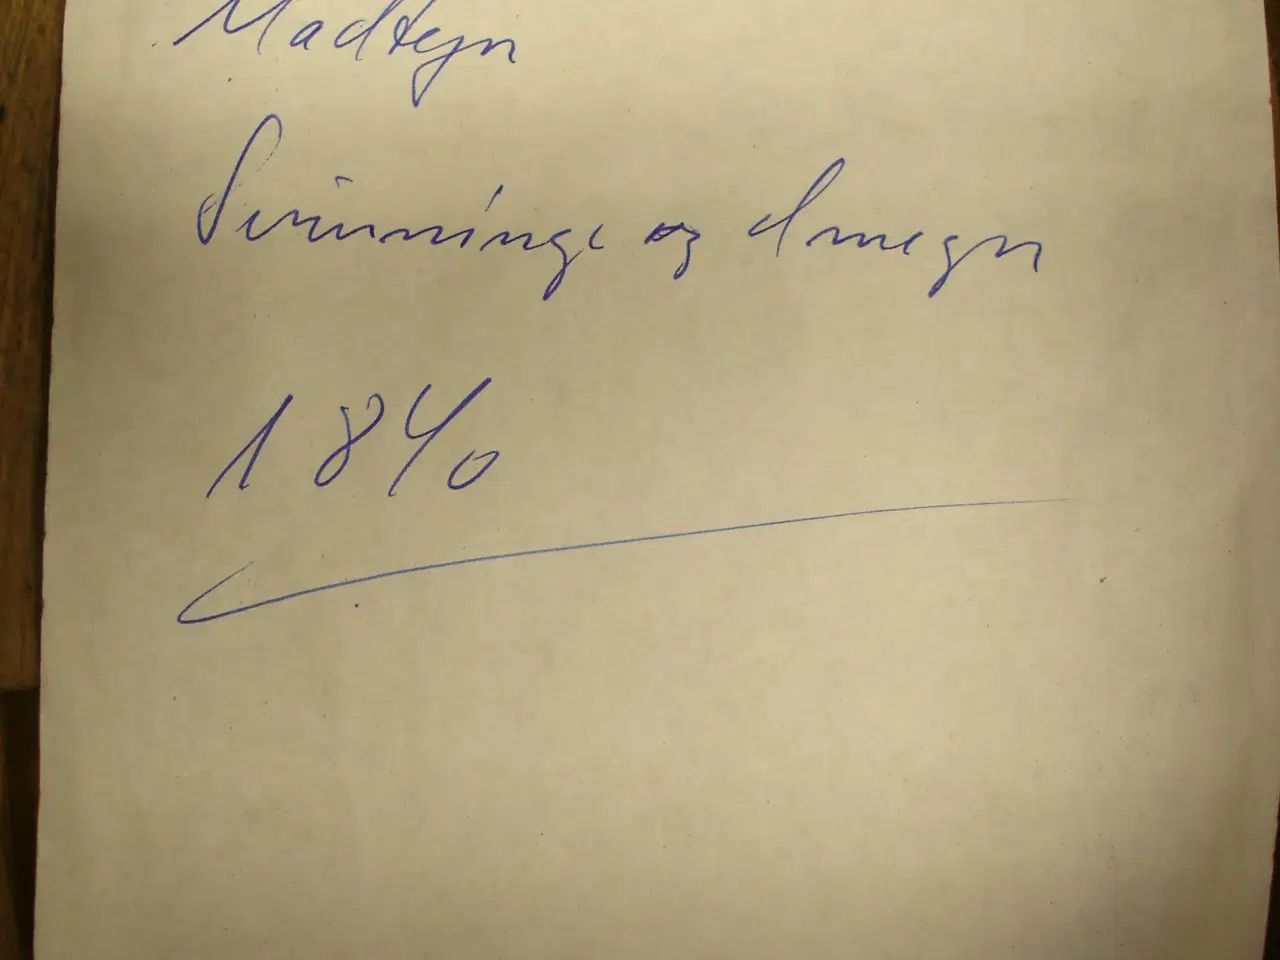 Madtegn
Svinninge og Omegn
1840